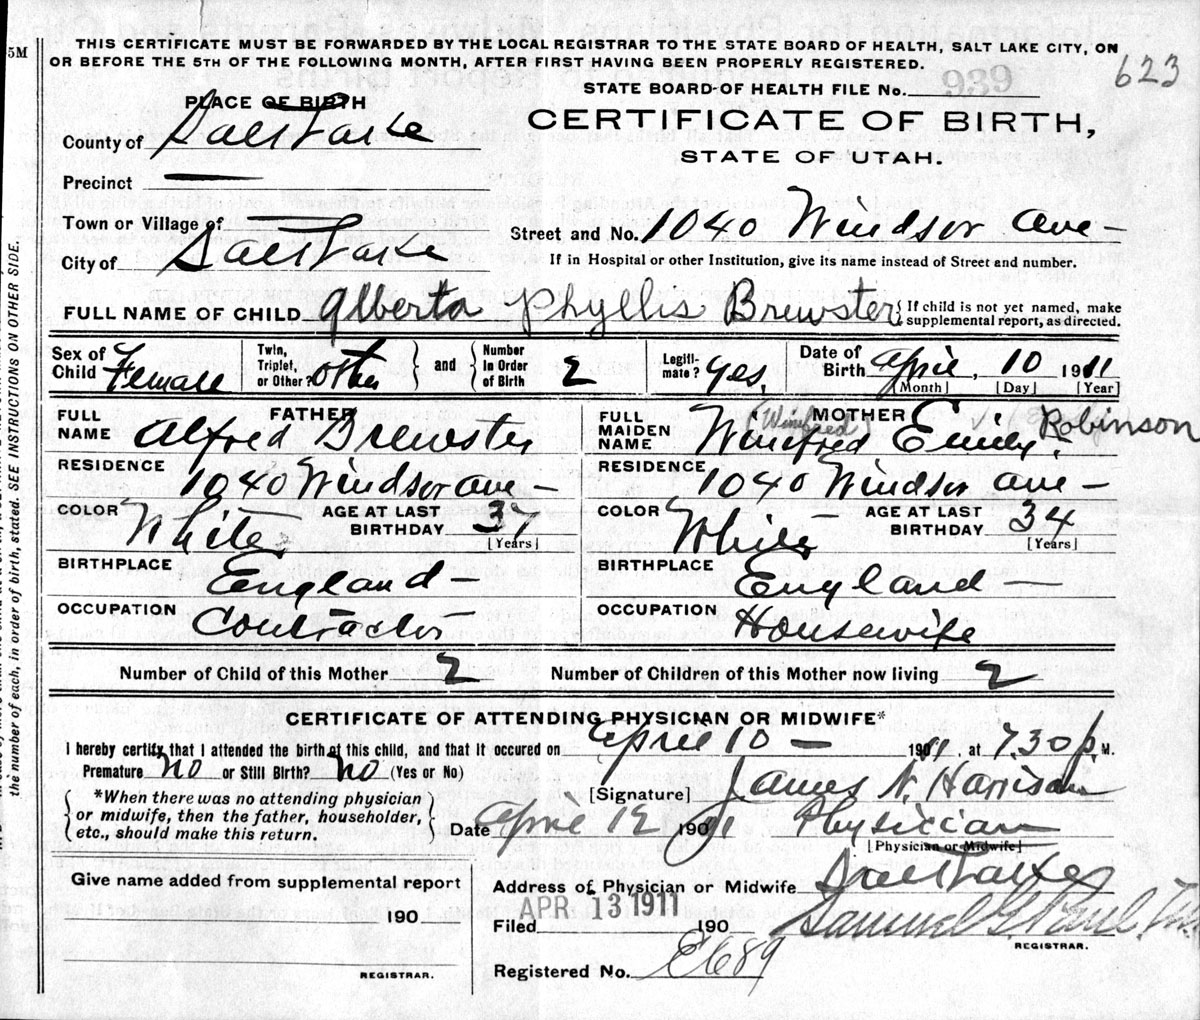 5M
THIS CERTIFICATE MUST BE FORWARDED BY THE LOCAL REGISTRAR TO THE STATE BOARD OF HEALTH, SALT LAKE CITY, ON
OR BEFORE THE 5TH OF THE FOLLOWING MONTH, AFTER FIRST HAVING BEEN PROPERLY REGISTERED.
623
STATE BOARD OF HEALTH FILE No. 939
PLACE OF BIRTH
CERTIFICATE OF BIRTH,
STATE OF UTAH.
County of Salt Lake
Precinct —
Town or Village of
Street and No. 1040 Windsor ave —
City of Salt Lake
If in Hospital or other Institution, give its name instead of Street and number.
FULL NAME OF CHILD Alberta Phyllis Brewster { If child is not yet named, make supplemental report, as directed.
Sex of Child Female Twin, Triplet, or Other? other } and { Number In Order of Birth 2 Legiti-mate? yes. Date of Birth April, 10 1911
[Month] [Day] [Year]
FATHER
FULL NAME Alfred Brewster
RESIDENCE 1040 Windsor ave —
COLOR White AGE AT LAST BIRTHDAY 37
[Years]
BIRTHPLACE England —
OCCUPATION Contractor
MOTHER
FULL MAIDEN NAME Winifred (Winifred) Emily Robinson
RESIDENCE 1040 Windsor ave —
COLOR White AGE AT LAST BIRTHDAY 34
[Years]
BIRTHPLACE England —
OCCUPATION Housewife
Number of Child of this Mother 2 Number of Children of this Mother now living 2
CERTIFICATE OF ATTENDING PHYSICIAN OR MIDWIFE*
I hereby certify that I attended the birth of this child, and that it occured on April 10 — 1911, at 7.30 P.M.
Premature no or Still Birth? no (Yes or No)
[Signature] James N. Harrison
{ *When there was no attending physician
or midwife, then the father, householder,
etc., should make this return. }
Date April 12 1911 Physician
[Physician or Midwife]
Give name added from supplemental report
190
REGISTRAR.
Address of Physician or Midwife Salt Lake
Filed APR 13 1911 190 Samuel G. Paul
REGISTRAR.
Registered No. E689
the number of each, in order of birth, stated. SEE INSTRUCTIONS ON OTHER SIDE.